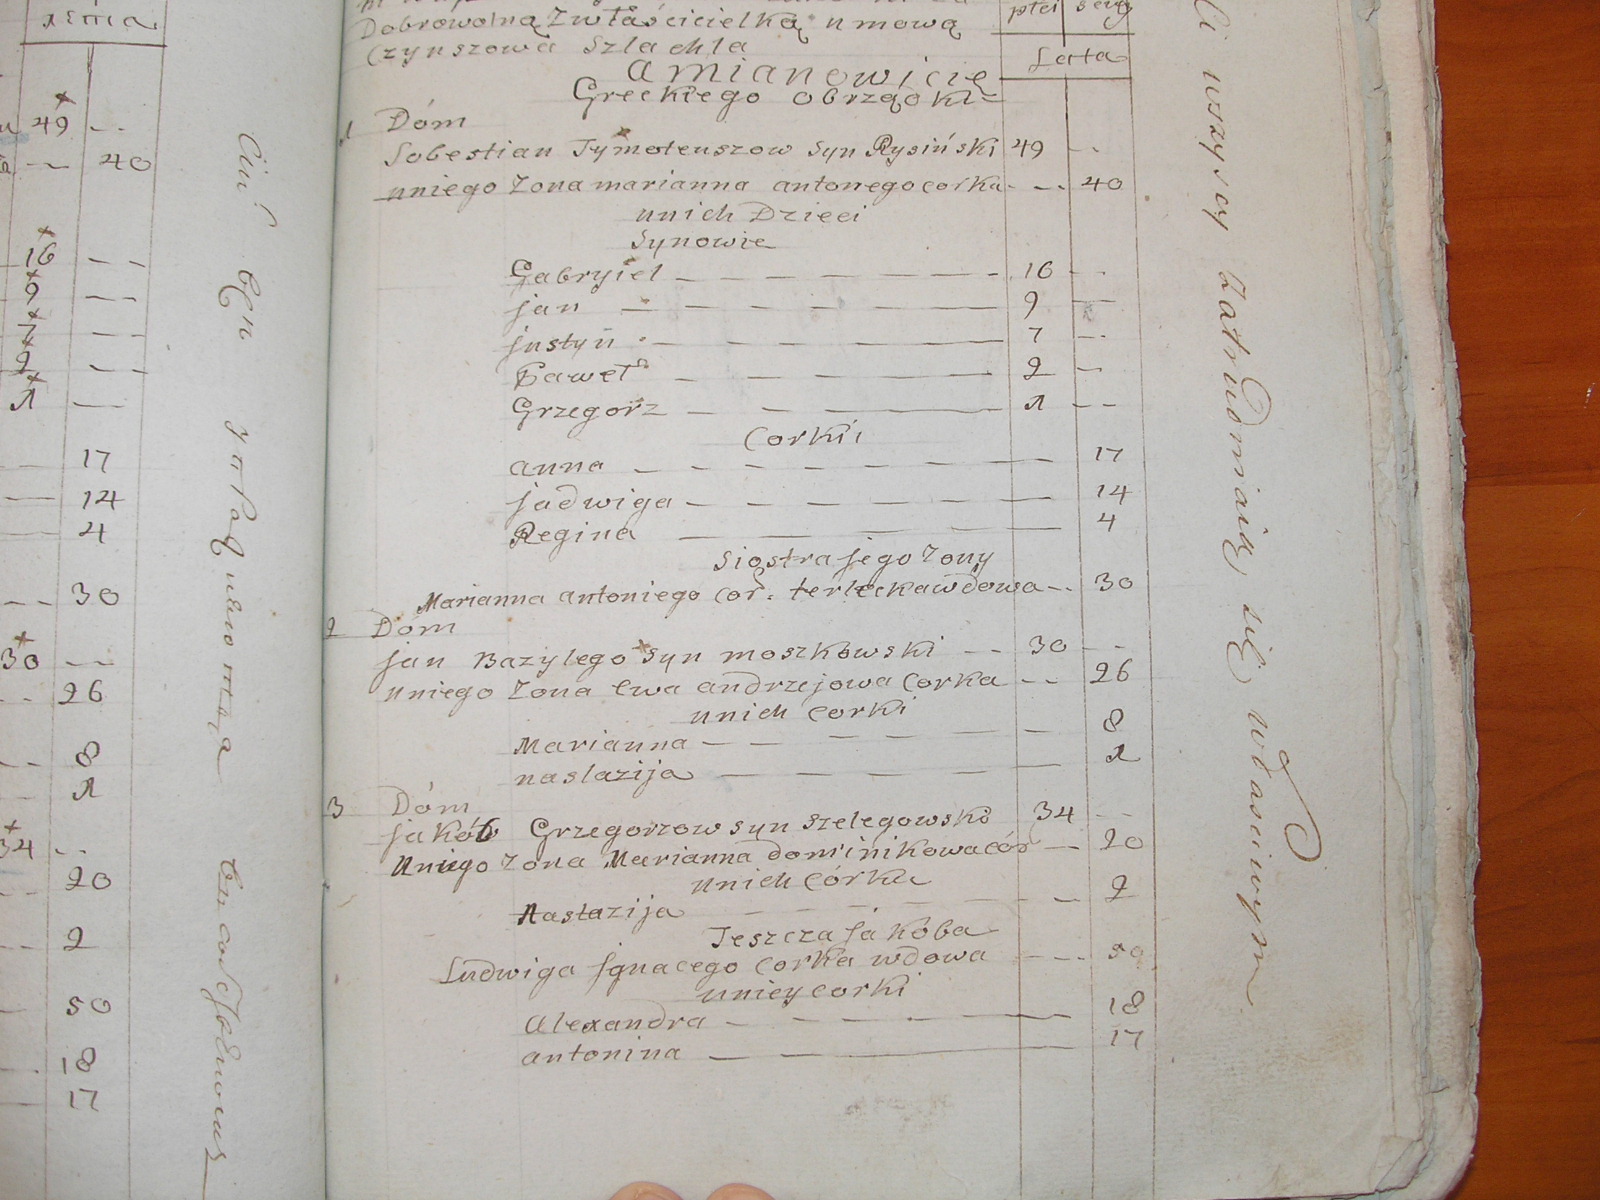 49 - -
- - 40
16 - -
9 - -
7 - -
2 - -
1 -
17
14
4
- - 30
30 - -
- - 26
- - 8
1
34 - -
20
- - 2
50
18
17
Dobrowolną Zwłaścicielką umową
Czynszowa Szlachta
Lata
Amianowicie
Greckiego obrządku =
1 Dóm
Sobestian Tymoteuszow Syn Rysiński 49 - -
uniego Zona marianna antonego corka - - - 40
unich Dzieci
Synowie
Gabryiel - - - - - - 16 - -
jan - - - - - - 9 -
justyn - - - - - - 7 - -
Paweł - - - - - 2 -
Grzegorz - - - - - 1 - -
Corki
anna - - - - - - - 17
jadwiga - - - - - - - 14
Regina - - - - 4
Siostra jego Zony
Marianna antoniego cor. terleckawdowa - - 30
2 Dóm
jan Bazylego Syn moszkowski - - 30 - -
uniego Zona Ewa andrzejowa Corka - - 26
unich Corki
Marianna - - - - - - 8
nastazija - - - - - 1
3 Dóm
jakób Grzegorzow syn Szelegowski 34 - -
Uniego Zona Marianna dominikowacór - 20
unich Córka
Nastazija - - - - - - 2
Teszcza jakóba
Ludwiga jgnacego Corka wdowa - - - 50
unieycorki
Alexandra - - - - - 18
antonina - - - 17
ci wszyscy zatrudniaią się właściwym